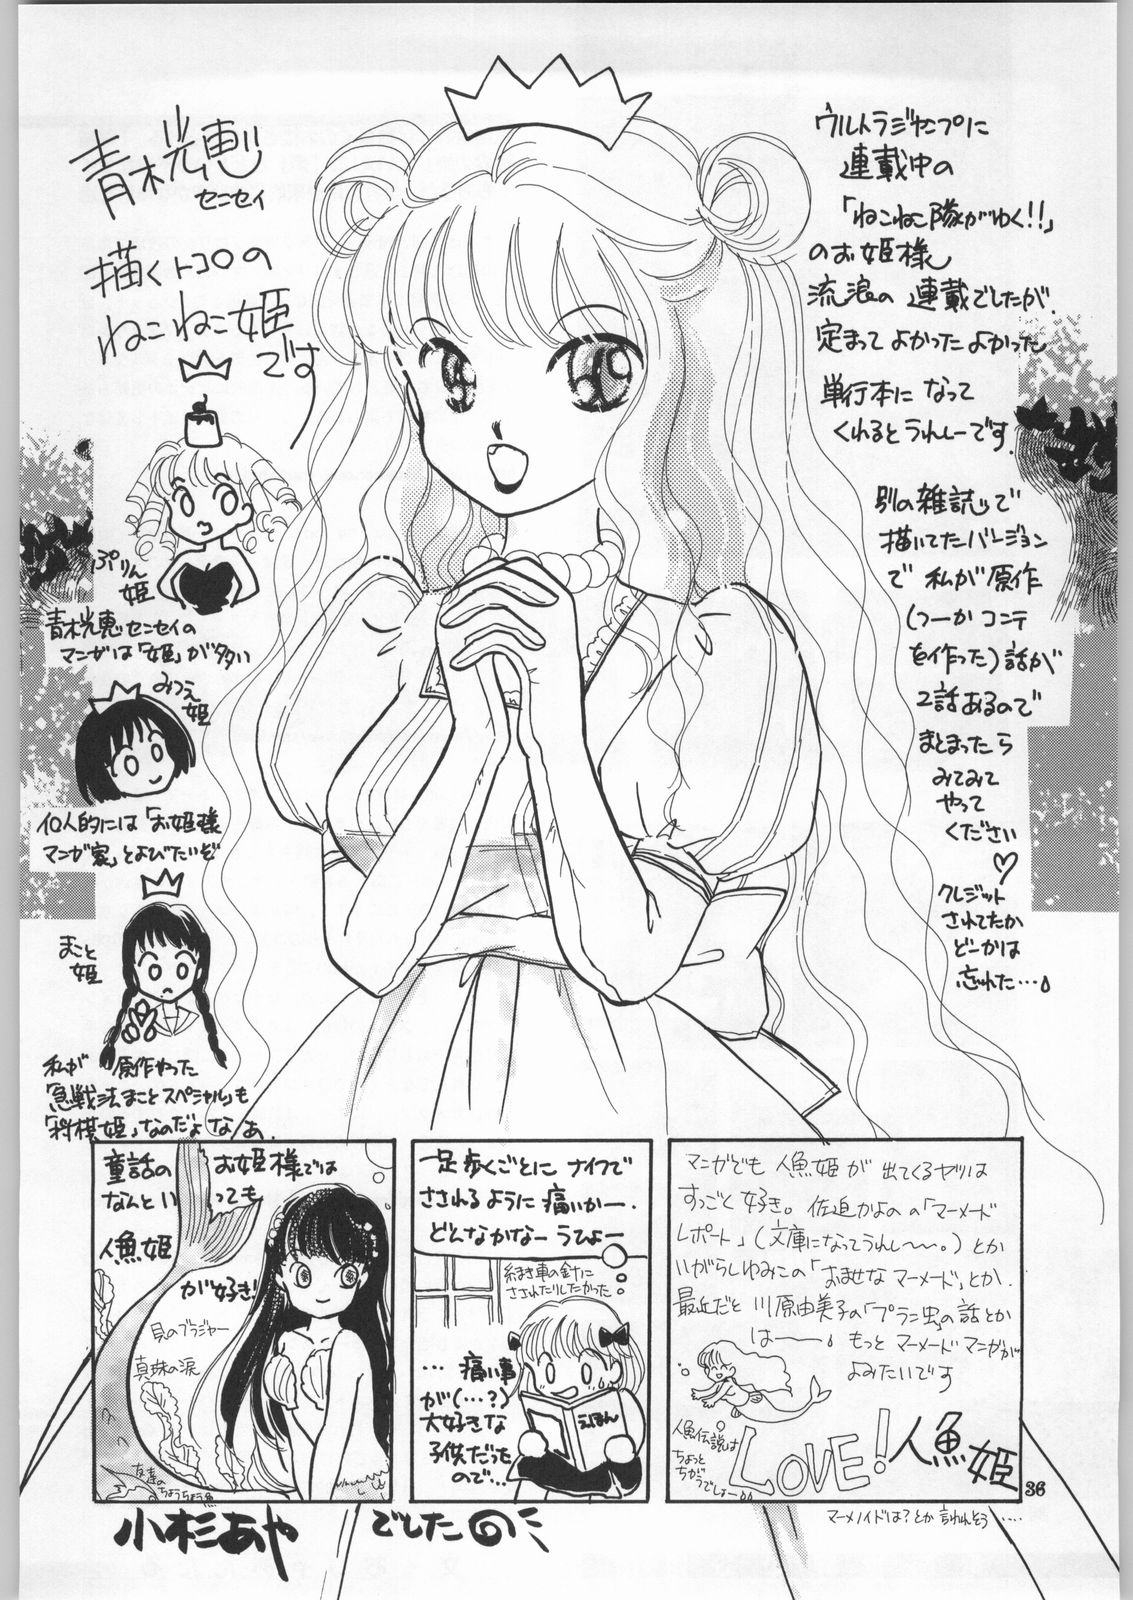 ウルトラジャンプに
連載中の
「ねこねこ隊がゆく!!」
のお姫様
流浪の連載でしたが、
定まってよかったよかった
単行本になって
くれるとうれしーです。
別の雑誌で
描いてたバージョン
で私が原作
(つーかコンテ
を作った)話が
2話あるので
まとまったら
みてみて
やって
ください
♡
クレジット
されてたか
どーかは
忘れた…
青木光恵
センセイ
描くトコロの
ねこねこ姫
です
ぷりん
姫
青木光恵センセイの
マンガは「姫」が多い
みつえ
姫
個人的には「お姫様
マンガ家」とよびたいぞ
まこと
姫
私が原作やった
「急戦法まことスペシャル」も
「将棋姫」なのだよなあ
童話のお姫様では
なんといっても
人魚姫
が好き!
貝のブラジャー
真珠の涙
友達の
ちょうちょう魚
一足歩くごとにナイフで
さされるように痛いかー。
どんなかなーうひょー
糸まき車の針に
さされたりしたかった
…痛い事
が(…?)
大好きな
子供だった
ので…
えほん
マンガでも人魚姫が出てくるヤツは
すっごく好き。佐迫かよのの「マーメード
レポート」(文庫になってうれし〜。)とか
いがらしゆみこの「おませなマーメード」とか。
最近だと川原由美子の「プラニ虫」の話とか
はーー。もっとマーメードマンガが
よみたいです
人魚伝説は
ちょっと
ちがうでしょー
LOVE!人魚姫
36
マーメノイドは?とか言われそう……
小杉あや でしたの